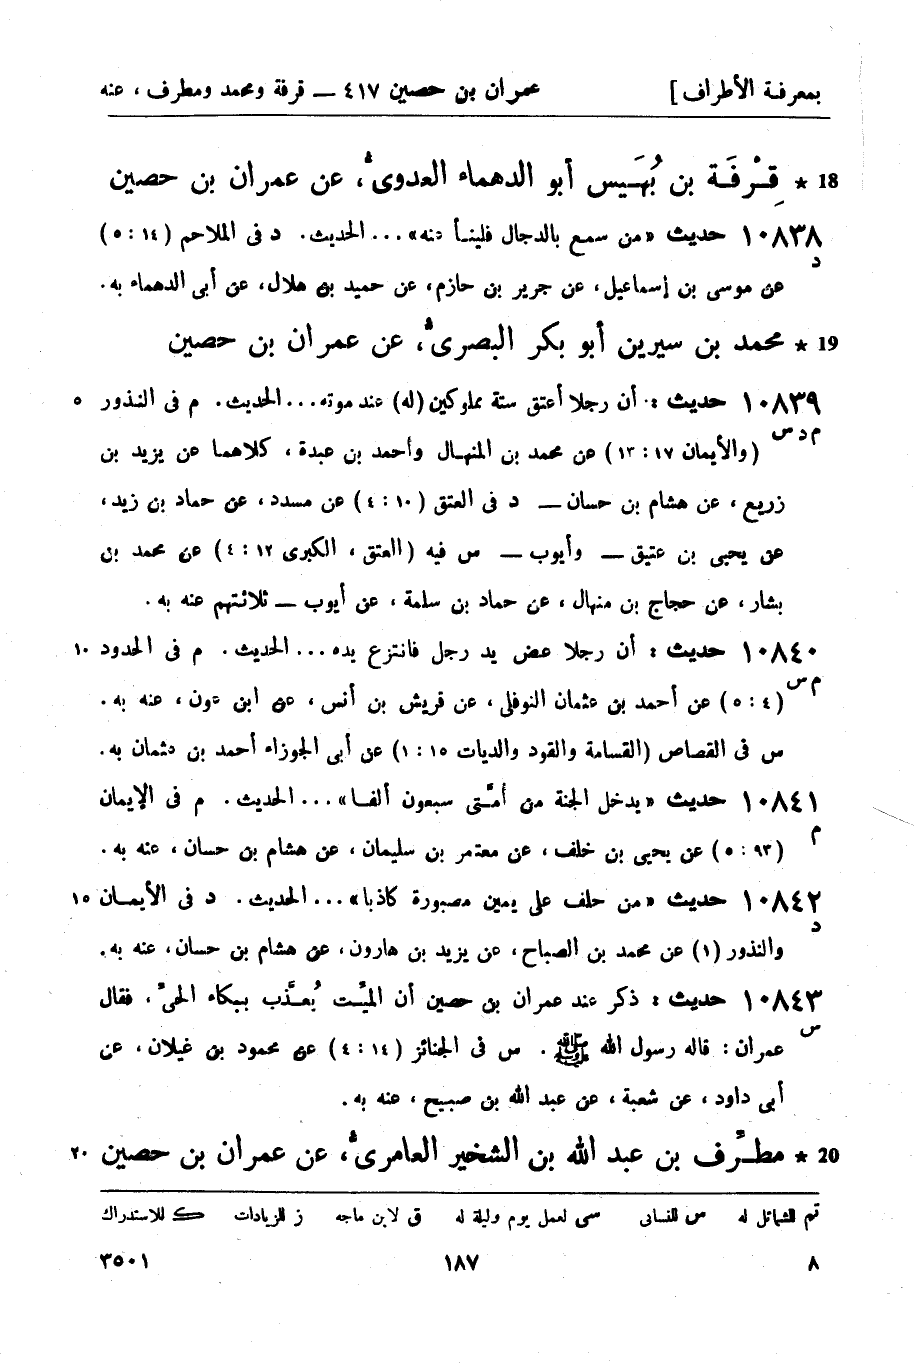 بمعرفة الأطراف] عمران بن حصين ٤١٧ ــ قرفة ومحمد ومطرف ، عنه
18 * قِرْفَة بن بُهَيس أبو الدهماء العدوى ، عن عمران بن حصين
١٠٨٣٨ حديث «من سمع بالدجال فلينأ منه»... الحديث. د فى الملاحم (١٤ : ٥)
د
عن موسى بن إسماعيل، عن جرير بن حازم، عن حميد بن هلال، عن أبى الدهماء به.
19 * محمد بن سيرين أبو بكر البصرى ، عن عمران بن حصين
١٠٨٣٩ حديث : أن رجلا أعتق ستة مملوكين (له) عند موته... الحديث. م فى النذور ٥
م د س
(والأيمان ١٧ : ١٣) عن محمد بن المنهال وأحمد بن عبدة ، كلاهما عن يزيد بن
زريع ، عن هشام بن حسان ــ د فى العتق (١٠ : ٤) عن مسدد ، عن حماد بن زيد،
عن يحيى بن عتيق ــ وأيوب ــ س فيه (العتق ، الكبرى ١٢ : ٤) عن محمد بن
بشار ، عن حجاج بن منهال ، عن حماد بن سلمة ، عن أيوب ــ ثلاثتهم عنه به .
١٠٨٤٠ حديث : أن رجلا عض يد رجل فانتزع يده... الحديث. م فى الحدود ١٠
م س
(٤ : ٥) عن أحمد بن عثمان النوفلى ، عن قريش بن أنس ، عن ابن عون ، عنه به.
س فى القصاص (القسامة والقود والديات ١٥ : ١) عن أبى الجوزاء أحمد بن عثمان به.
١٠٨٤١ حديث «يدخل الجنة من أمتى سبعون ألفا»... الحديث. م فى الإيمان
م
(٩٣ : ٥) عن يحيى بن خلف ، عن معتمر بن سليمان ، عن هشام بن حسان ، عنه به.
١٠٨٤٢ حديث «من حلف على يمين مصبورة كاذبا»... الحديث. د فى الأيمان ١٥
د
والنذور (١) عن محمد بن الصباح ، عن يزيد بن هارون، عن هشام بن حسان، عنه به.
١٠٨٤٣ حديث : ذكر عند عمران بن حصين أن الميّت يُعذَّب ببكاء الحىّ ، فقال
س
عمران : قاله رسول الله ﷺ . س فى الجنائز (١٤ : ٤) عن محمود بن غيلان، عن
أبى داود ، عن شعبة ، عن عبد الله بن صبيح ، عنه به.
20 * مطرِّف بن عبد الله بن الشخير العامرى ، عن عمران بن حصين ٢٠
تم للشمائل له س للنسائى سى لعمل يوم وليلة له ق لابن ماجه ز للزيادات ك للاستدراك
٨ ١٨٧ ٣٥٠١